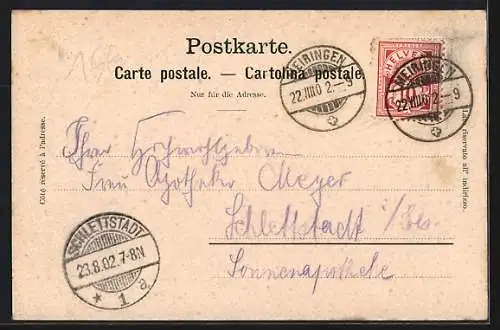 Postkarte.
Carte postale. — Cartolina postale.
Nur für die Adresse.
Côté réservé à l'adresse.
Lato riservato all' indirizzo.
HELVETIA
MEIRINGEN
22.VIII.02.—9
MEIRINGEN
22.VIII.02.—9
Ihrer Hochwohlgeboren
Frau Apotheker Meyer
Schlettstadt i/Els.
Sonnenapotheke
SCHLETTSTADT
23.8.02.7-8N
* 1 a